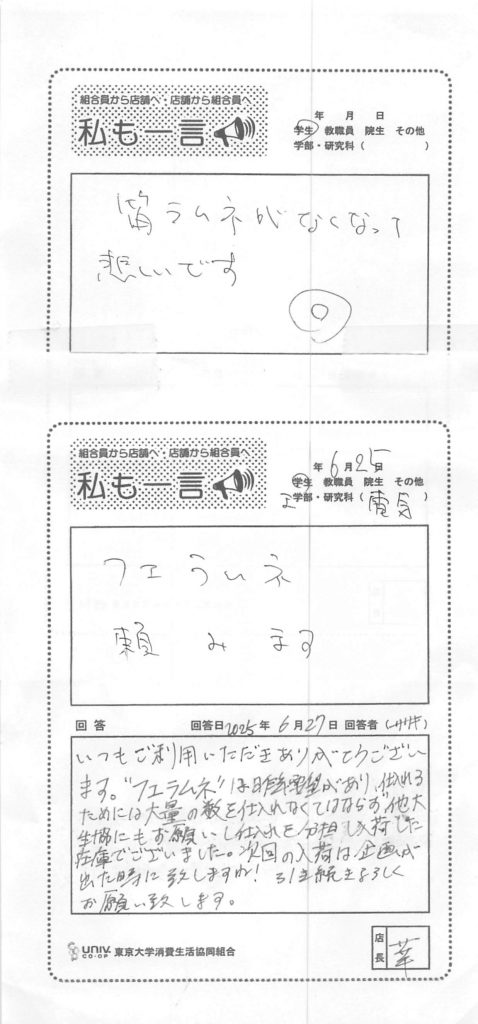 組合員から店舗へ・店舗から組合員へ
私も一言
年 月 日
学生 教職員 院生 その他
学部・研究科( )
笛ラムネがなくなって
悲しいです
組合員から店舗へ・店舗から組合員へ
私も一言
年 6月25日
学生 教職員 院生 その他
工 学部・研究科( 電気 )
フエラムネ
頼みます
回答 回答日 2025年 6月27日 回答者(ササキ)
いつもご利用いただきありがとうござい
ます。"フエラムネ"は昨年要望があり、仕入れる
ためには大量の数を仕入れなくてはならず他大
生協にもお願いし仕入れを分担し入荷した
在庫でございました。次回の入荷は企画が
出た時に致しますね! 引き続きよろしく
お願い致します。
UNIV. CO-OP 東京大学消費生活協同組合
店長